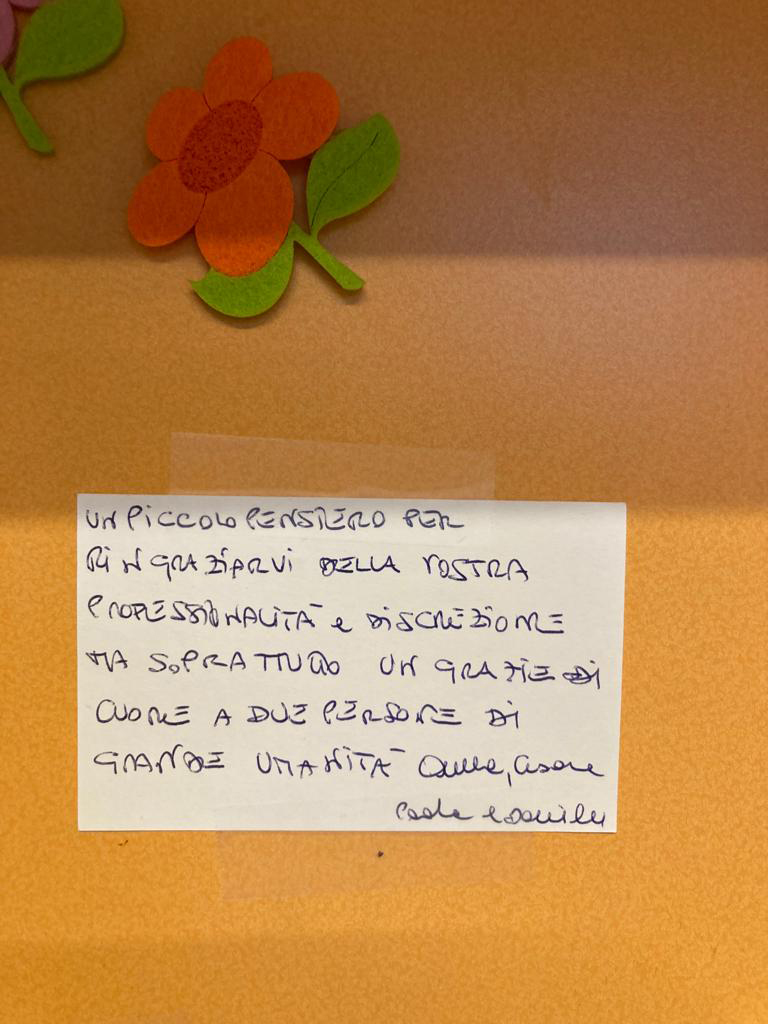 UN PICCOLO PENSIERO PER
RINGRAZIARVI DELLA VOSTRA
PROFESSIONALITÀ e DISCREZIONE
MA SOPRATTUTTO UN GRAZIE DI
CUORE A DUE PERSONE DI
GRANDE UMANITÀ